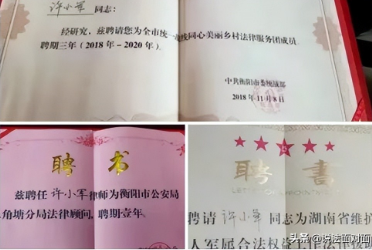 许小军 同志：
经研究，兹聘请您为全市统一战线同心美丽乡村法律服务团成员
聘期三年（2018年-2020年）
中共衡阳市委统战部
2018年11月8日
聘 书
兹聘任 许小军 律师为衡阳市公安局
角塘分局法律顾问，聘期壹年。
聘 書
聘请 许小军 同志为湖南省维护
人军属合法权益
头条 @说法面对面